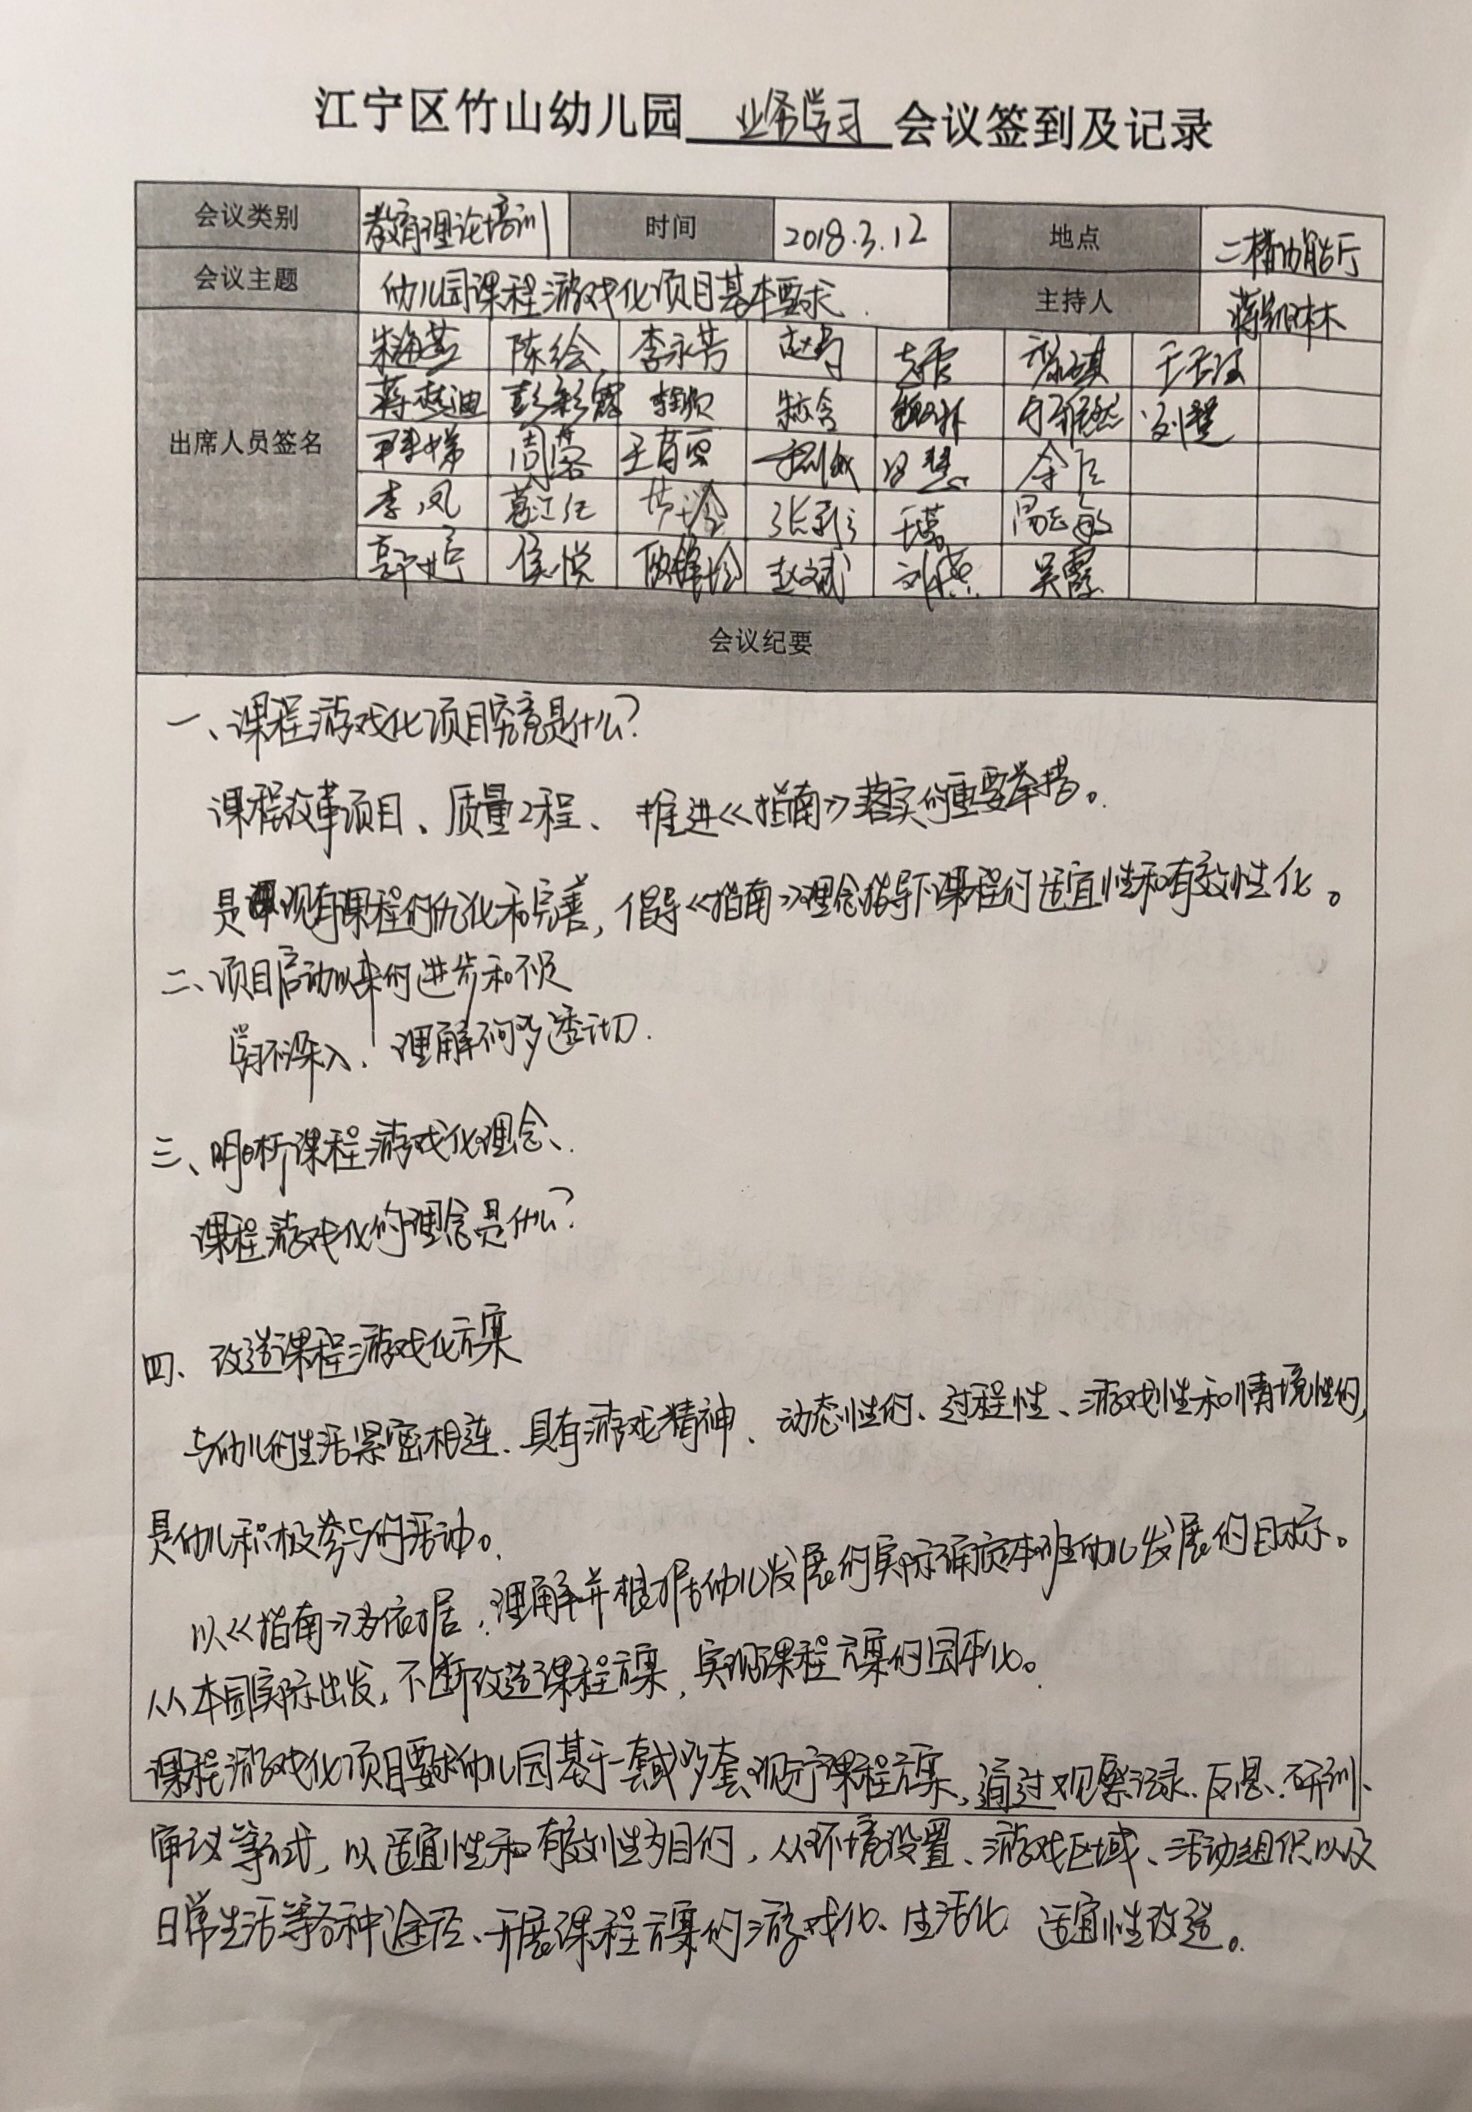 江宁区竹山幼儿园 业务学习 会议签到及记录
会议类别 教育理论培训 时间 2018.3.12 地点 二楼功能厅
会议主题 幼儿园课程游戏化项目基本要求 主持人
出席人员签名
陈绘 李永芳
彭彩露 刘慧
周蓉 余臣
李凤 葛江红
侯悦 赵文斌 刘燕 吴霞
会议纪要
一、课程游戏化项目究竟是什么?
课程改革项目、质量工程、推进《指南》落实的重要举措。
是现有课程的优化和完善,倡导《指南》理念指导下课程的适宜性和有效性化。
二、项目启动以来的进步和不足
学习不深入、理解不够透切.
三、明晰课程游戏化理念、
课程游戏化的理念是什么?
四、改造课程游戏化方案
与幼儿的生活紧密相连、具有游戏精神、动态性的、过程性、游戏性和情境性的,
是幼儿积极参与的活动。
以《指南》为依据,理解并根据幼儿发展的实际确定本班幼儿发展的目标。
从本园实际出发,不断改造课程方案,实现课程方案的园本化。
课程游戏化项目要求幼儿园基于一套或多套现行课程方案,通过观察记录、反思、研训、
审议等形式,以适宜性和有效性为目的,从环境设置、游戏区域、活动组织以及
日常生活等各种途径、开展课程方案的游戏化、生活化 适宜性改造。